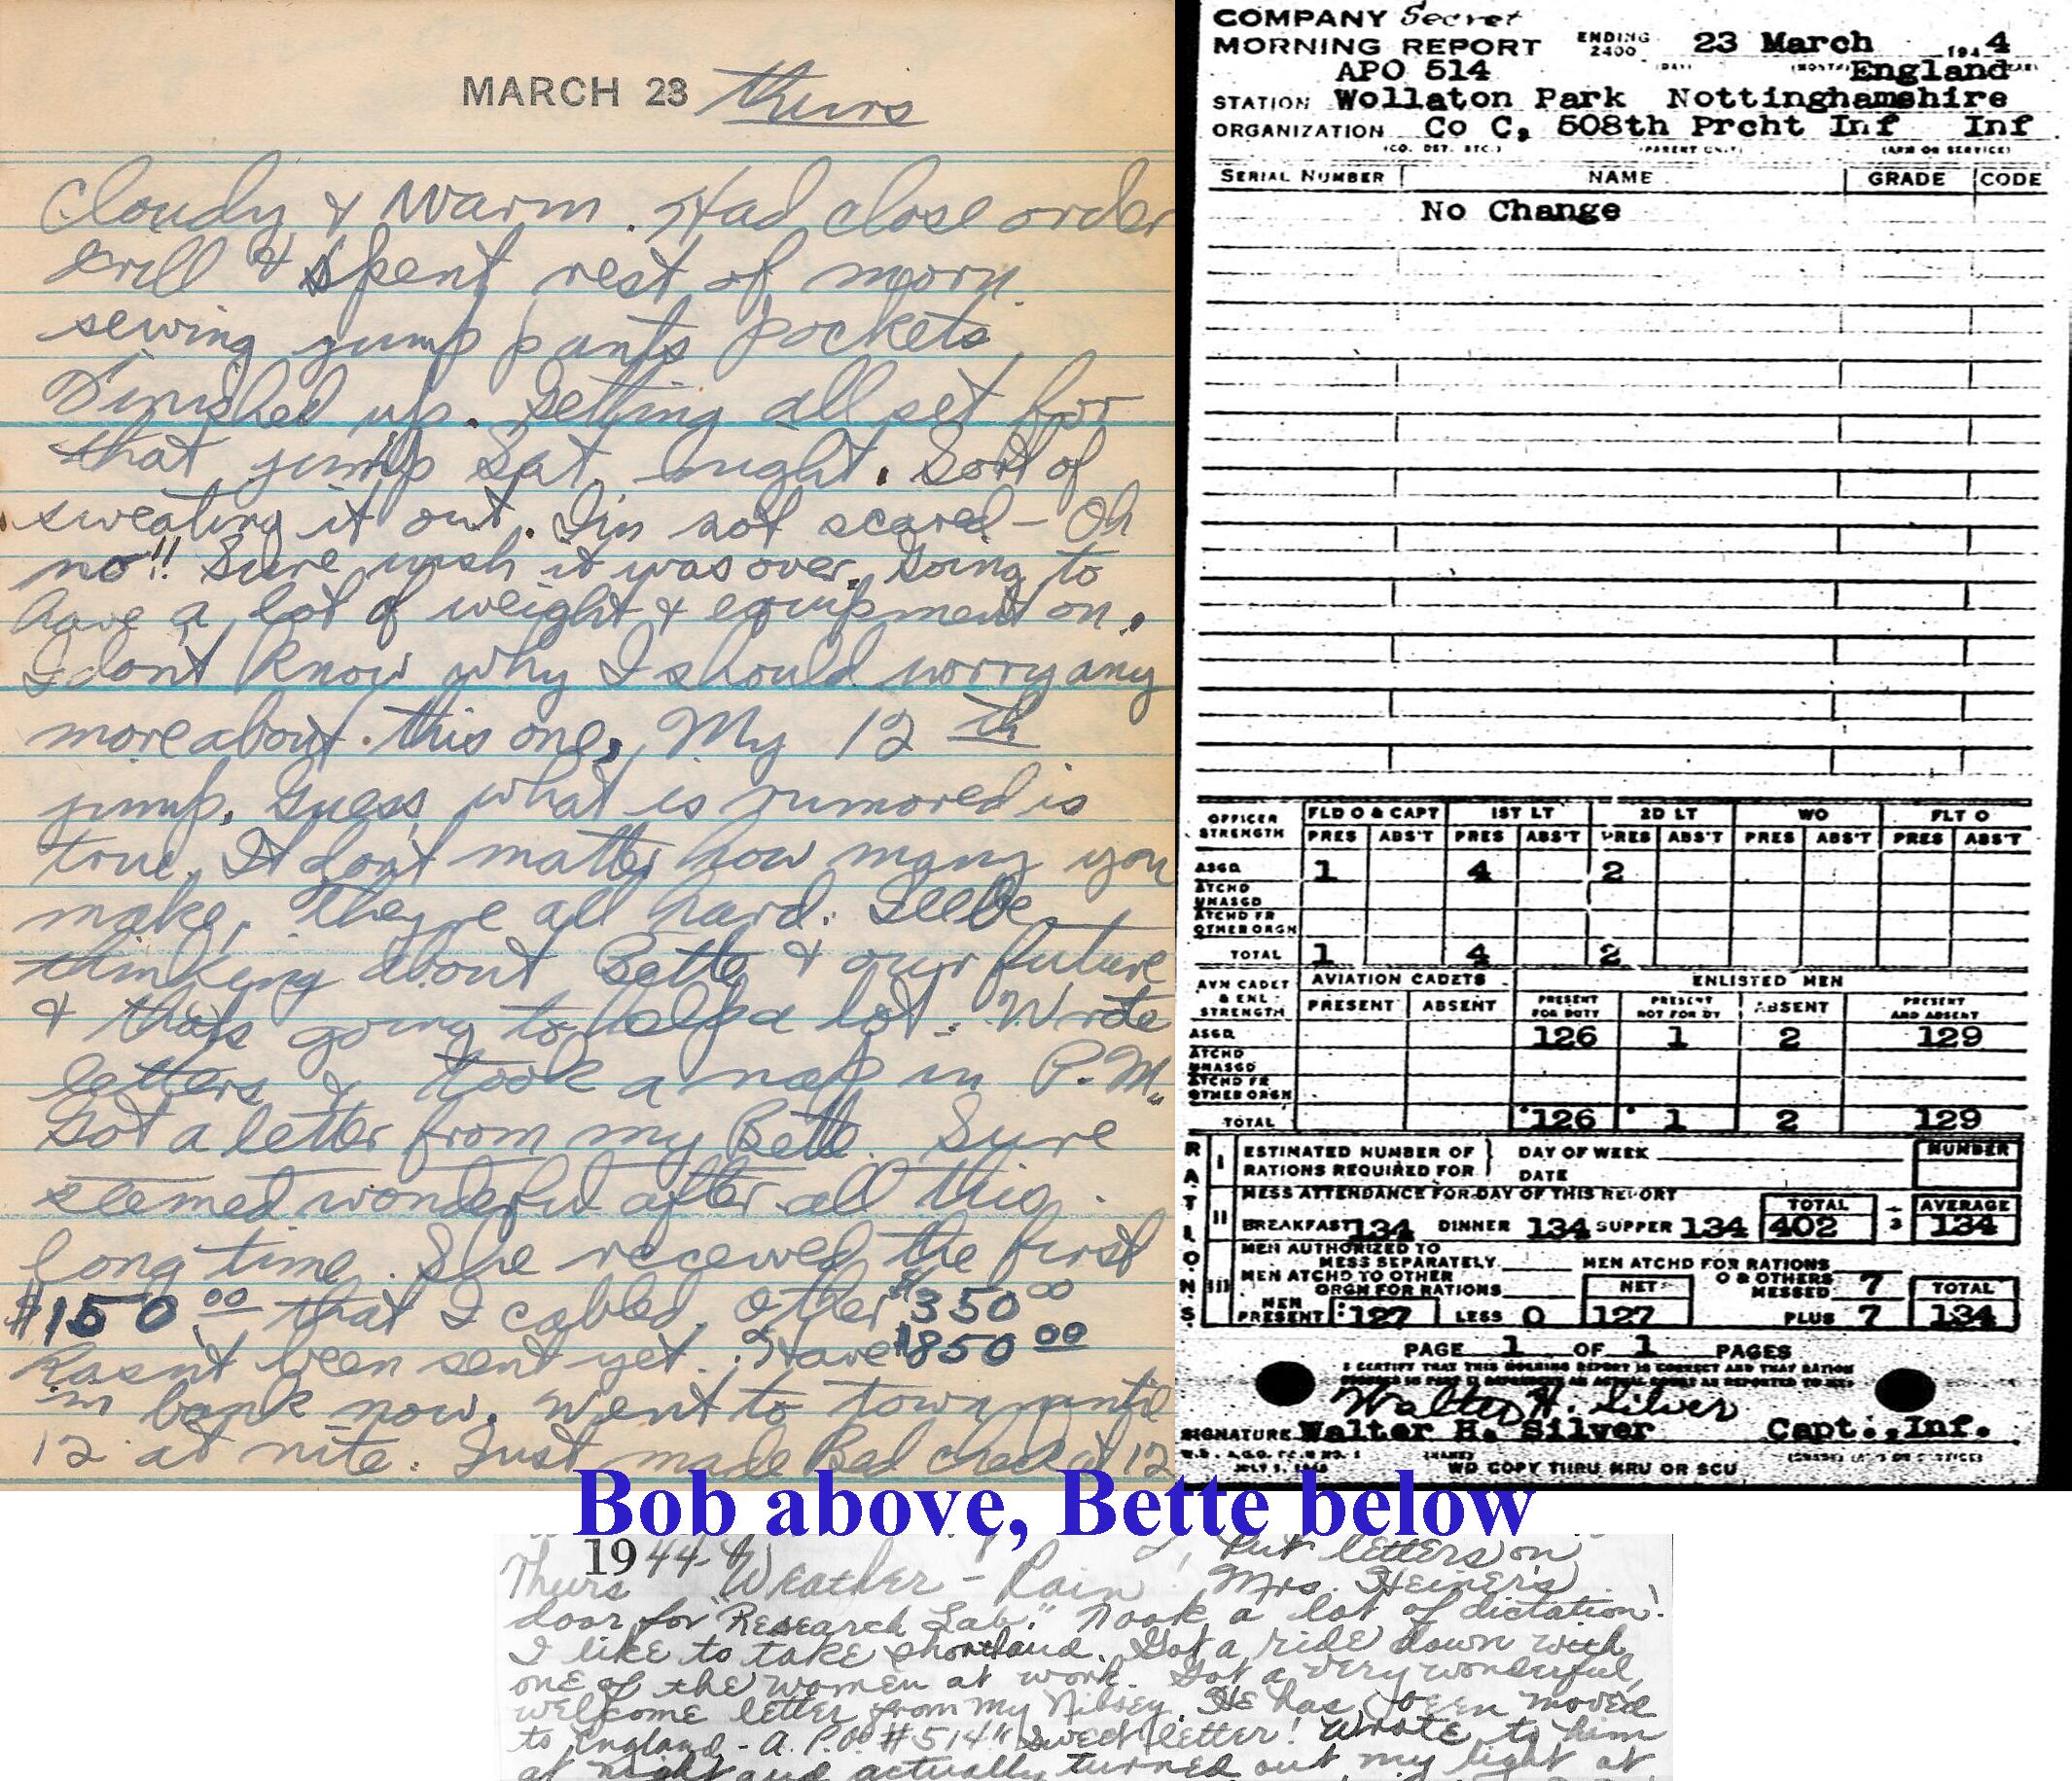 MARCH 23 Thurs
Cloudy & Warm. Had close order
drill & spent rest of morn.
sewing jump pants pockets.
Finished up. Getting all set for
that jump Sat. night. Sort of
sweating it out. I'm not scared - Oh
no!! Sure wish it was over. Going to
have a lot of weight & equipment on.
I dont know why I should worry any
more about this one, My 12 th
jump. Guess what is rumored is
true. It dont matter how many you
make, They're all hard. I'll be
thinking about Bette & our future
& thats going to help a lot. Wrote
letters & took a nap in P.M.
Got a letter from my Bette. Sure
seemed wonderful after all this
long time. She received the first
$150 00 that I cabled. Other $350 00
hasn't been sent yet. Have $850 00
in bank now. Went to town until
12 at nite. Just made Bed check at 12
COMPANY Secret
MORNING REPORT ENDING 2400 23 March 1944
APO 514 (DAY) (MONTH) England
STATION Wollaton Park Nottinghamshire
ORGANIZATION Co C, 508th Prcht Inf Inf
(CO. DET. ETC.) (PARENT UNIT) (ARM OR SERVICE)
SERIAL NUMBER NAME GRADE CODE
No Change
OFFICER STRENGTH FLD O & CAPT 1ST LT 2D LT WO FLT O
PRES ABS'T PRES ABS'T PRES ABS'T PRES ABS'T PRES ABS'T
ASGD 1 4 2
ATCHD UNASGD
ATCHD FR OTHER ORGN
TOTAL 1 4 2
AVN CADET & ENL STRENGTH AVIATION CADETS ENLISTED MEN
PRESENT ABSENT PRESENT FOR DUTY PRESENT NOT FOR DY ABSENT PRESENT AND ABSENT
ASGD 126 1 2 129
ATCHD UNASGD
ATCHD FR OTHER ORGN
TOTAL 126 1 2 129
RATIONS
I ESTIMATED NUMBER OF RATIONS REQUIRED FOR DAY OF WEEK DATE NUMBER
II MESS ATTENDANCE FOR DAY OF THIS REPORT TOTAL ÷ 3 AVERAGE
BREAKFAST 134 DINNER 134 SUPPER 134 402 134
III MEN AUTHORIZED TO MESS SEPARATELY MEN ATCHD FOR RATIONS
MEN ATCHD TO OTHER ORGN FOR RATIONS NET O & OTHERS MESSED 7 TOTAL
MEN PRESENT 127 LESS 0 127 PLUS 7 134
PAGE 1 OF 1 PAGES
I CERTIFY THAT THIS MORNING REPORT IS CORRECT AND THAT RATION
Walter H. Silver
SIGNATURE Walter H. Silver Capt., Inf.
WD COPY THRU MRU OR SCU
Bob above, Bette below
1944 Put letters on
Thurs Weather - Rain Mrs. Heiner's
door for "Research Lab." Took a lot of dictation.
I like to take shorthand. Got a ride down with
one of the women at work. Got a very wonderful,
welcome letter from my Nibsey. He has been moved
to England - A.P.O. #514. Sweet letter! Wrote to him
at night and actually turned out my light at